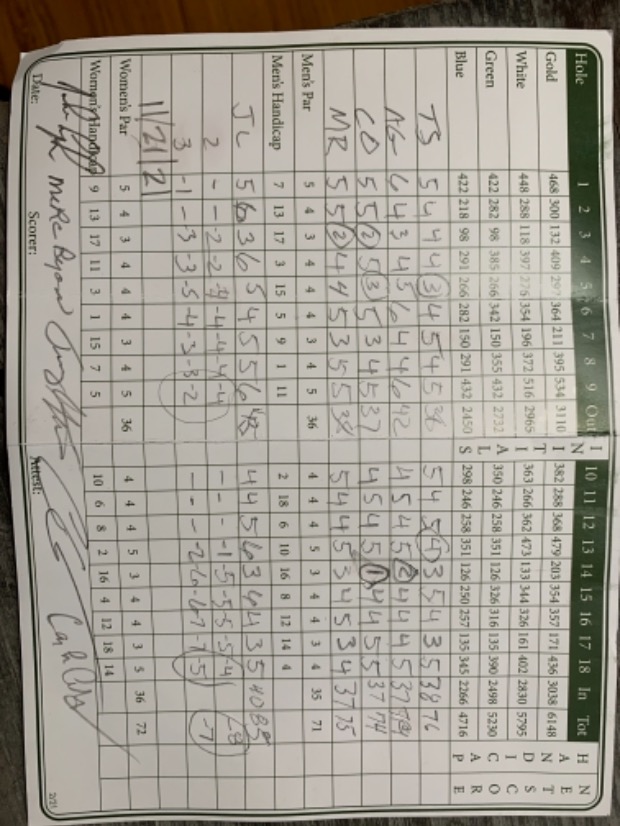 Hole 1 2 3 4 5 6 7 8 9 Out I N I T I A L S 10 11 12 13 14 15 16 17 18 In Tot H A N D I C A P N E T S C O R E
Gold 468 300 132 409 297 364 211 395 534 3110 382 288 368 479 203 354 357 171 436 3038 6148
White 448 288 118 397 276 354 196 372 516 2965 363 266 362 473 133 344 326 161 402 2830 5795
Green 422 282 98 385 266 342 150 355 432 2732 350 246 258 351 126 326 316 135 390 2498 5230
Blue 422 218 98 291 266 282 150 291 432 2450 298 246 258 351 126 250 257 135 345 2266 4716
TS 5 4 4 4 3 4 5 4 5 38 5 4 5 4 3 5 4 3 5 38 76
AG 6 4 3 4 5 6 4 4 6 42 4 5 4 5 2 4 4 4 5 37 79
CO 5 5 2 5 3 5 3 4 5 37 4 5 4 5 1 4 4 5 5 37 74
MR 5 5 2 4 4 5 3 5 5 38 5 4 4 5 3 4 5 3 4 37 75
Men's Par 5 4 3 4 4 4 3 4 5 36 4 4 4 5 3 4 4 3 4 35 71
Men's Handicap 7 13 17 3 15 5 9 1 11 2 18 6 10 16 8 12 14 4
JL 5 6 3 6 5 4 5 5 6 45 4 4 5 6 3 4 4 3 5 40 85
2 - - -2 -2 -4 -4 -4 -4 -4 - - - -1 -5 -5 -5 -5 -4 -8
3 -1 - -3 -3 -5 -4 -3 -3 -2 - - - -2 -6 -6 -7 -7 -5 -7
11/21/21
Women's Par 5 4 3 4 4 4 3 4 5 36 4 4 4 5 3 4 4 3 5 36 72
Women's Handicap 9 13 17 11 3 1 15 7 5 10 6 8 2 16 4 12 18 14
Date: Scorer: Attest: 2/21